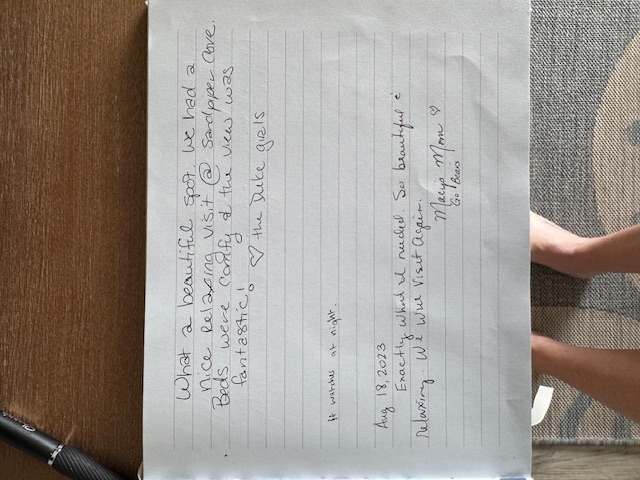 What a beautiful spot. We had a
nice relaxing visit @ Sandpiper Cove.
Beds were comfy & the view was
fantastic!
♡ the Duke girls
It watches at night.
Aug 18, 2023
Exactly what I needed. So beautiful &
relaxing. We Will Visit Again.
Macy's Mom ♡
Go Bears